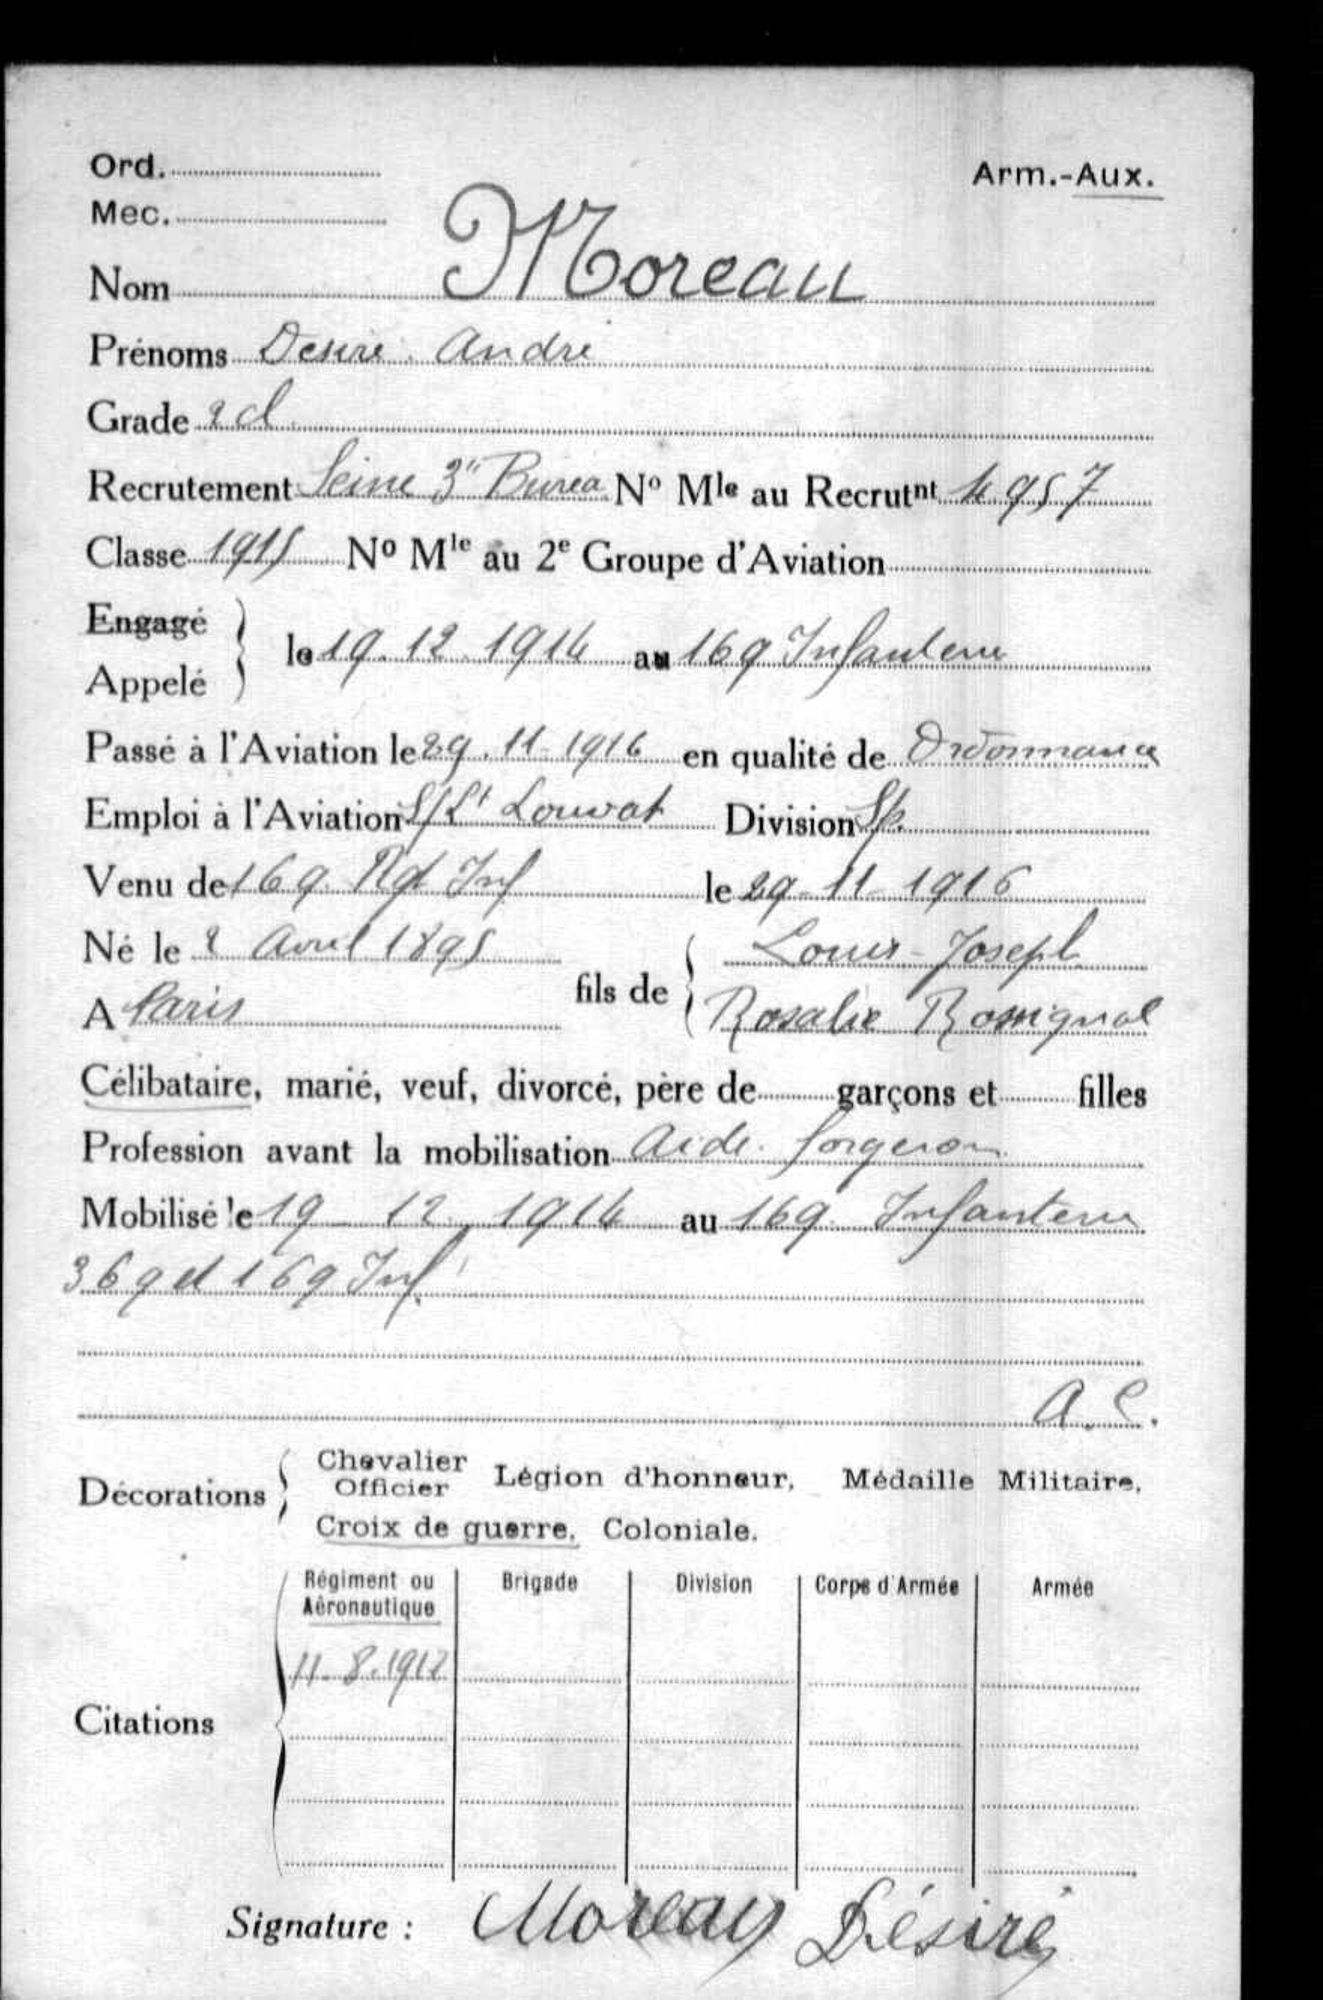 Ord.
Arm.-Aux.
Mec.
Nom Moreau
Prénoms Desire André
Grade 2 cl
Recrutement Seine 3" Burea No Mle au Recrutnt 4957
Classe 1915 No Mle au 2e Groupe d'Aviation
Engagé
Appelé
le 19.12.1914 au 169 Infanterie
Passé à l'Aviation le 29.11-1916 en qualité de Ordonnance
Emploi à l'Aviation S/Lt Louvat Division Sp.
Venu de 169 Rgt Inf le 29-11-1916
Né le 2 Avril 1895 fils de Louis-Joseph
A Paris Rosalie Rossignol
Célibataire, marié, veuf, divorcé, père de garçons et filles
Profession avant la mobilisation Aide forgeron
Mobilisé le 19 12 1914 au 169 Infanterie
369 et 169 Inf
A.C.
Décorations Chevalier Officier Légion d'honneur, Médaille Militaire,
Croix de guerre, Coloniale.
Régiment ou Aéronautique Brigade Division Corps d'Armée Armée
11.8.1917
Citations
Signature : Moreau Désiré